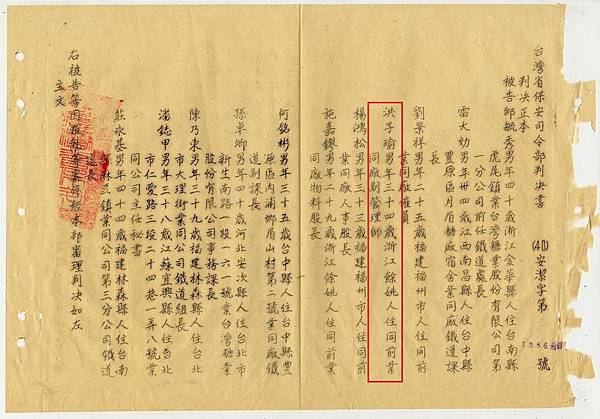 台灣省保安司令部判決書 (40)安潔字第 1356 號
判決正本
被告邰毓秀男年四十歲浙江金華縣人住台南縣
虎尾鎮業台灣糖業股份有限公司第
一分公司前任鐵道處長
雷大効男年卅四歲江西南昌縣人住台中縣
豐原區月眉糖廠宿舍業同廠鐵道課
長
劉景祥男年二十五歲福建福州市人住同前
業同廠雇員
洪子瑜男年三十四歲浙江餘姚人住同前業
同廠副管理師
楊鴻松男年三十三歲福建福州市人住同前
業同廠人事股長
施嘉鏜男年三十二歲浙江餘姚人住同前業
同廠物料股長
何銘彬男年三十五歲台中縣人住台中縣豐
原區內浦鄉眉山村第二號業同廠鐵
道副課長
孫卓卿男年四十歲河北安次縣人住台北市
新生南路一段一六一號業台灣糖業
股份有限公司事務課長
陳乃東男年三十九歲福建林森縣人住台北
市大理街業同公司鐵道組長
潘誌甲男年三十八歲江蘇宜興縣人住台北
市仁愛路三段二十四巷一弄八號業
同公司主任秘書
莊永基男年四十四歲福建林森縣人住台南
縣 鎮業同公司第三分公司鐵道
處長
右被告等因叛亂等案件經本部審理判決如左
主文